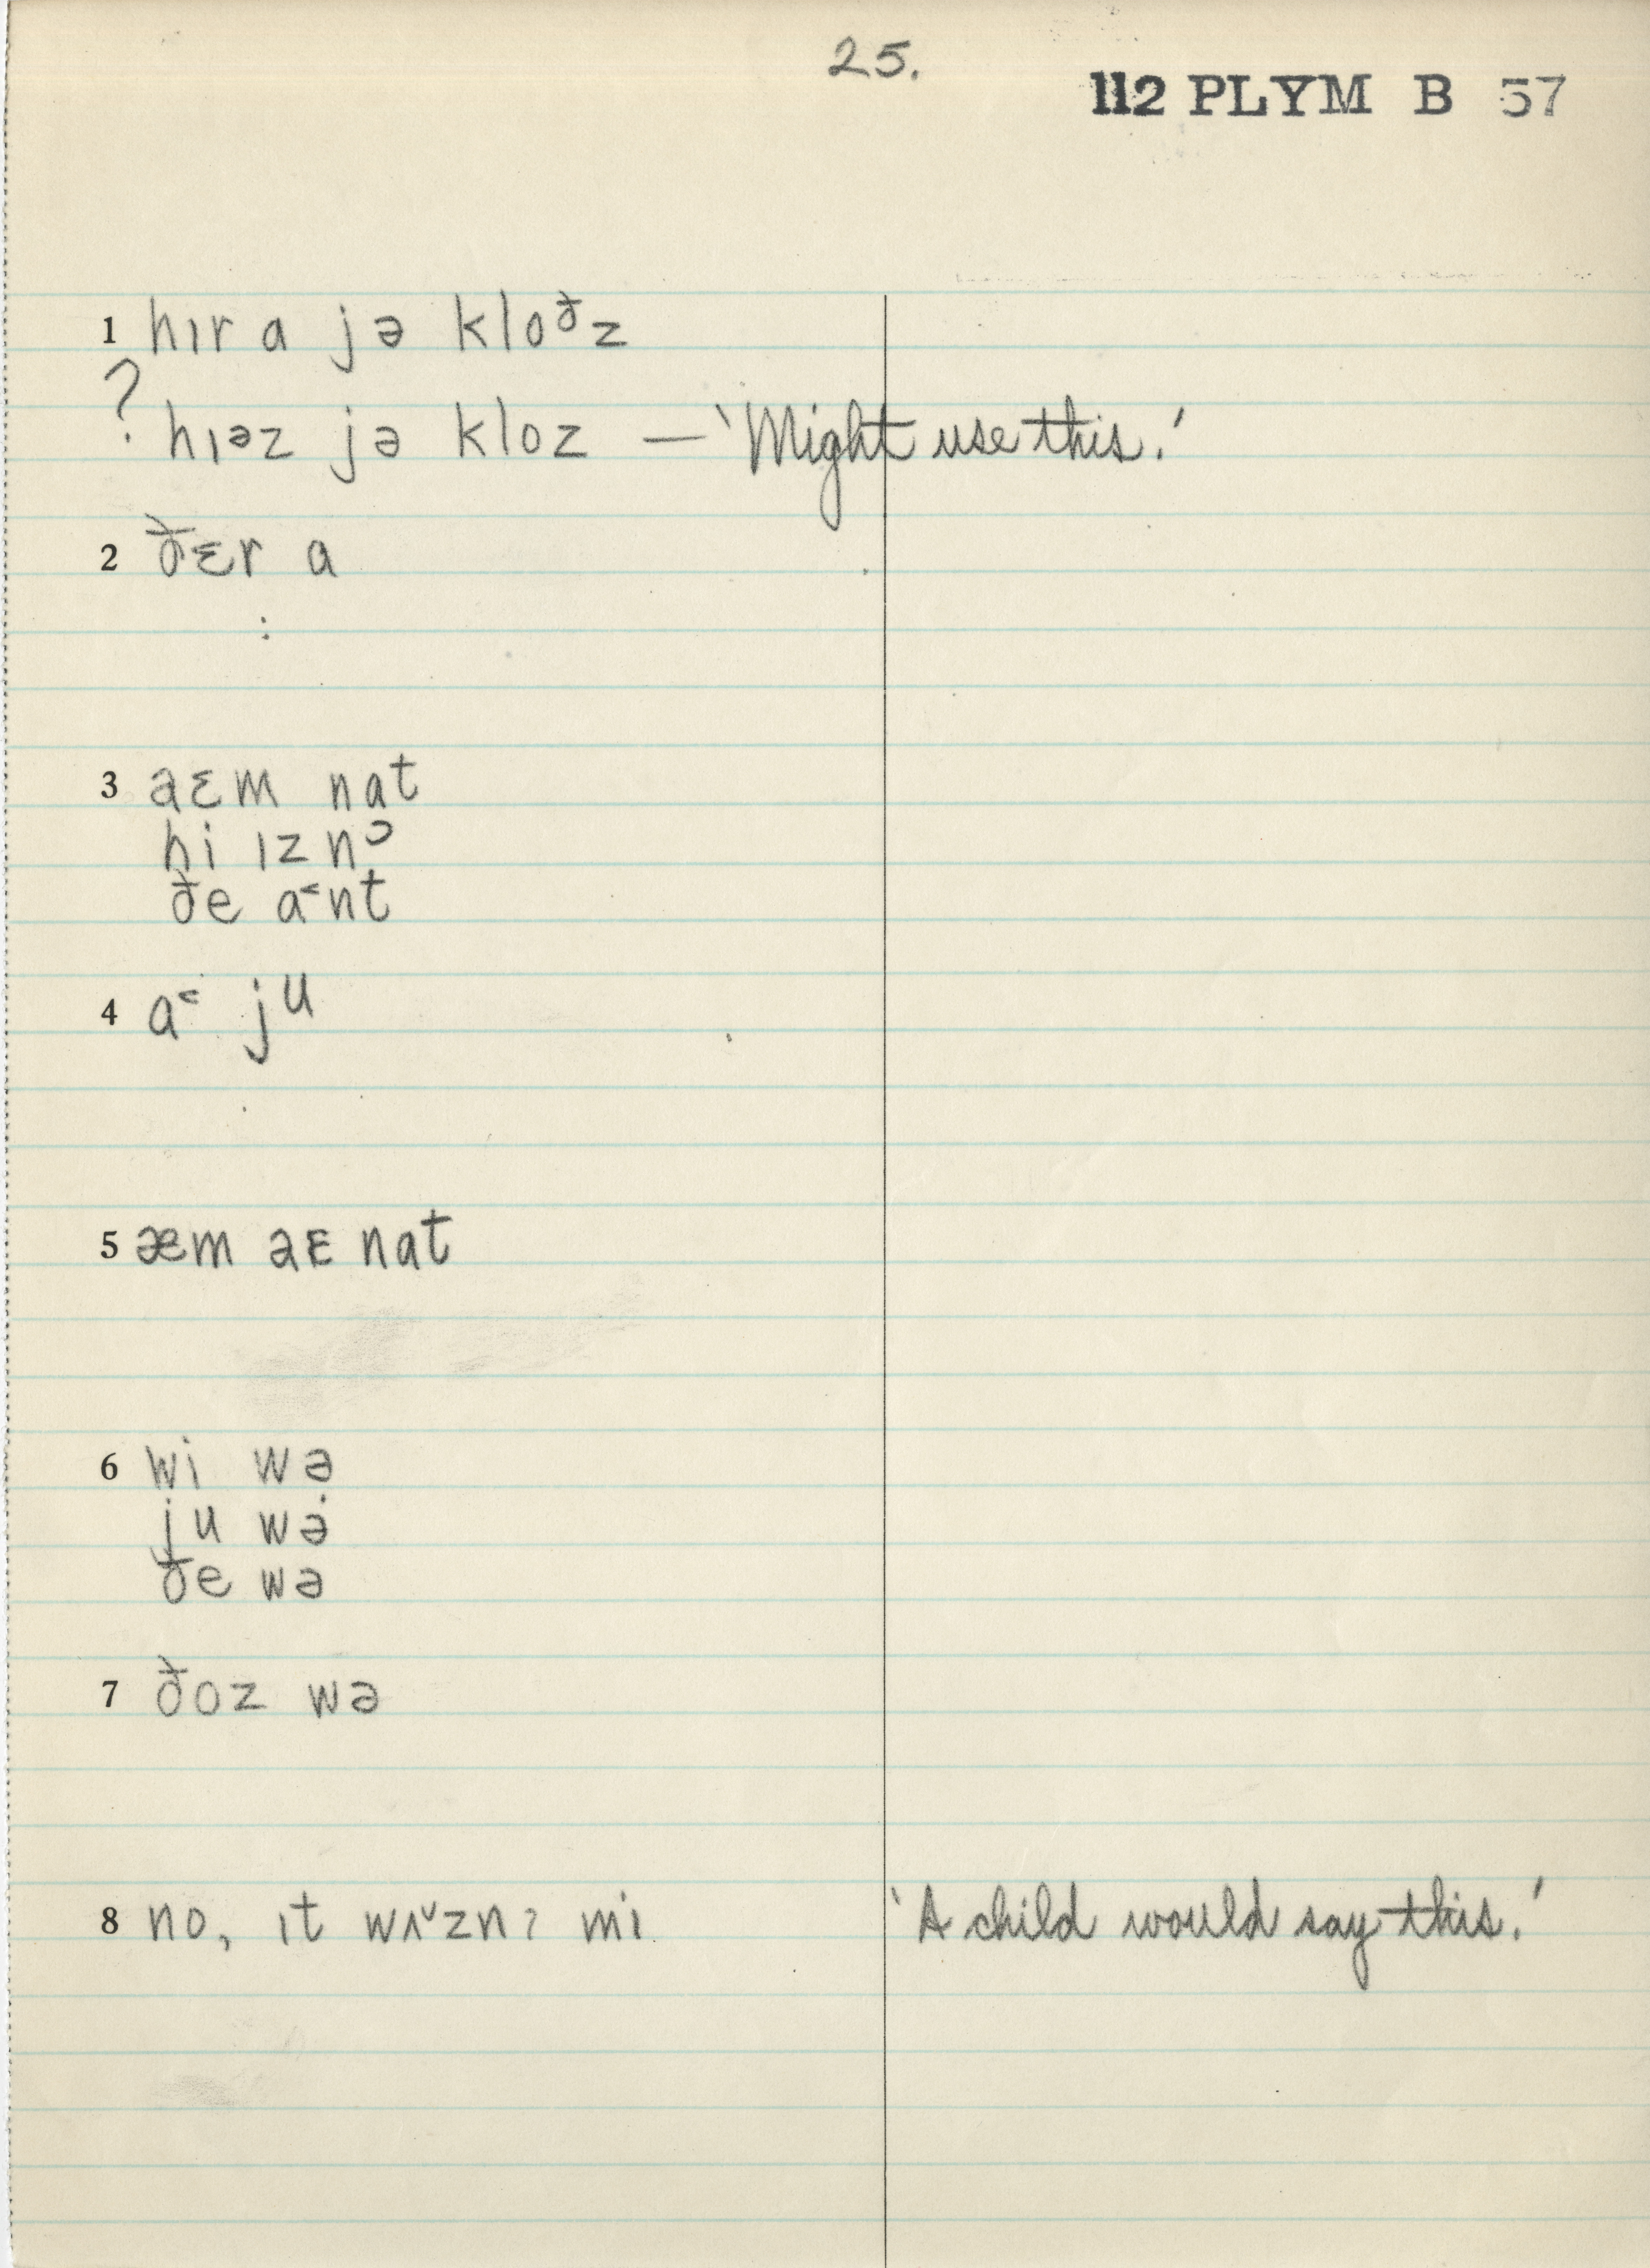 25.
112 PLYM B 57
1 hɪr a jə kloᶞz
? hɪəz jə kloz — 'Might use this.'
2 ðɛr a
:
3 aɛm nat
hi ɪz nɔ
ðe a˂nt
4 a˂ ju
5 æm aɛ nat
6 wi wə
ju wə
ðe wə
7 ðoz wə
8 no, ɪt wʌ˅znɂ mi 'A child would say this.'